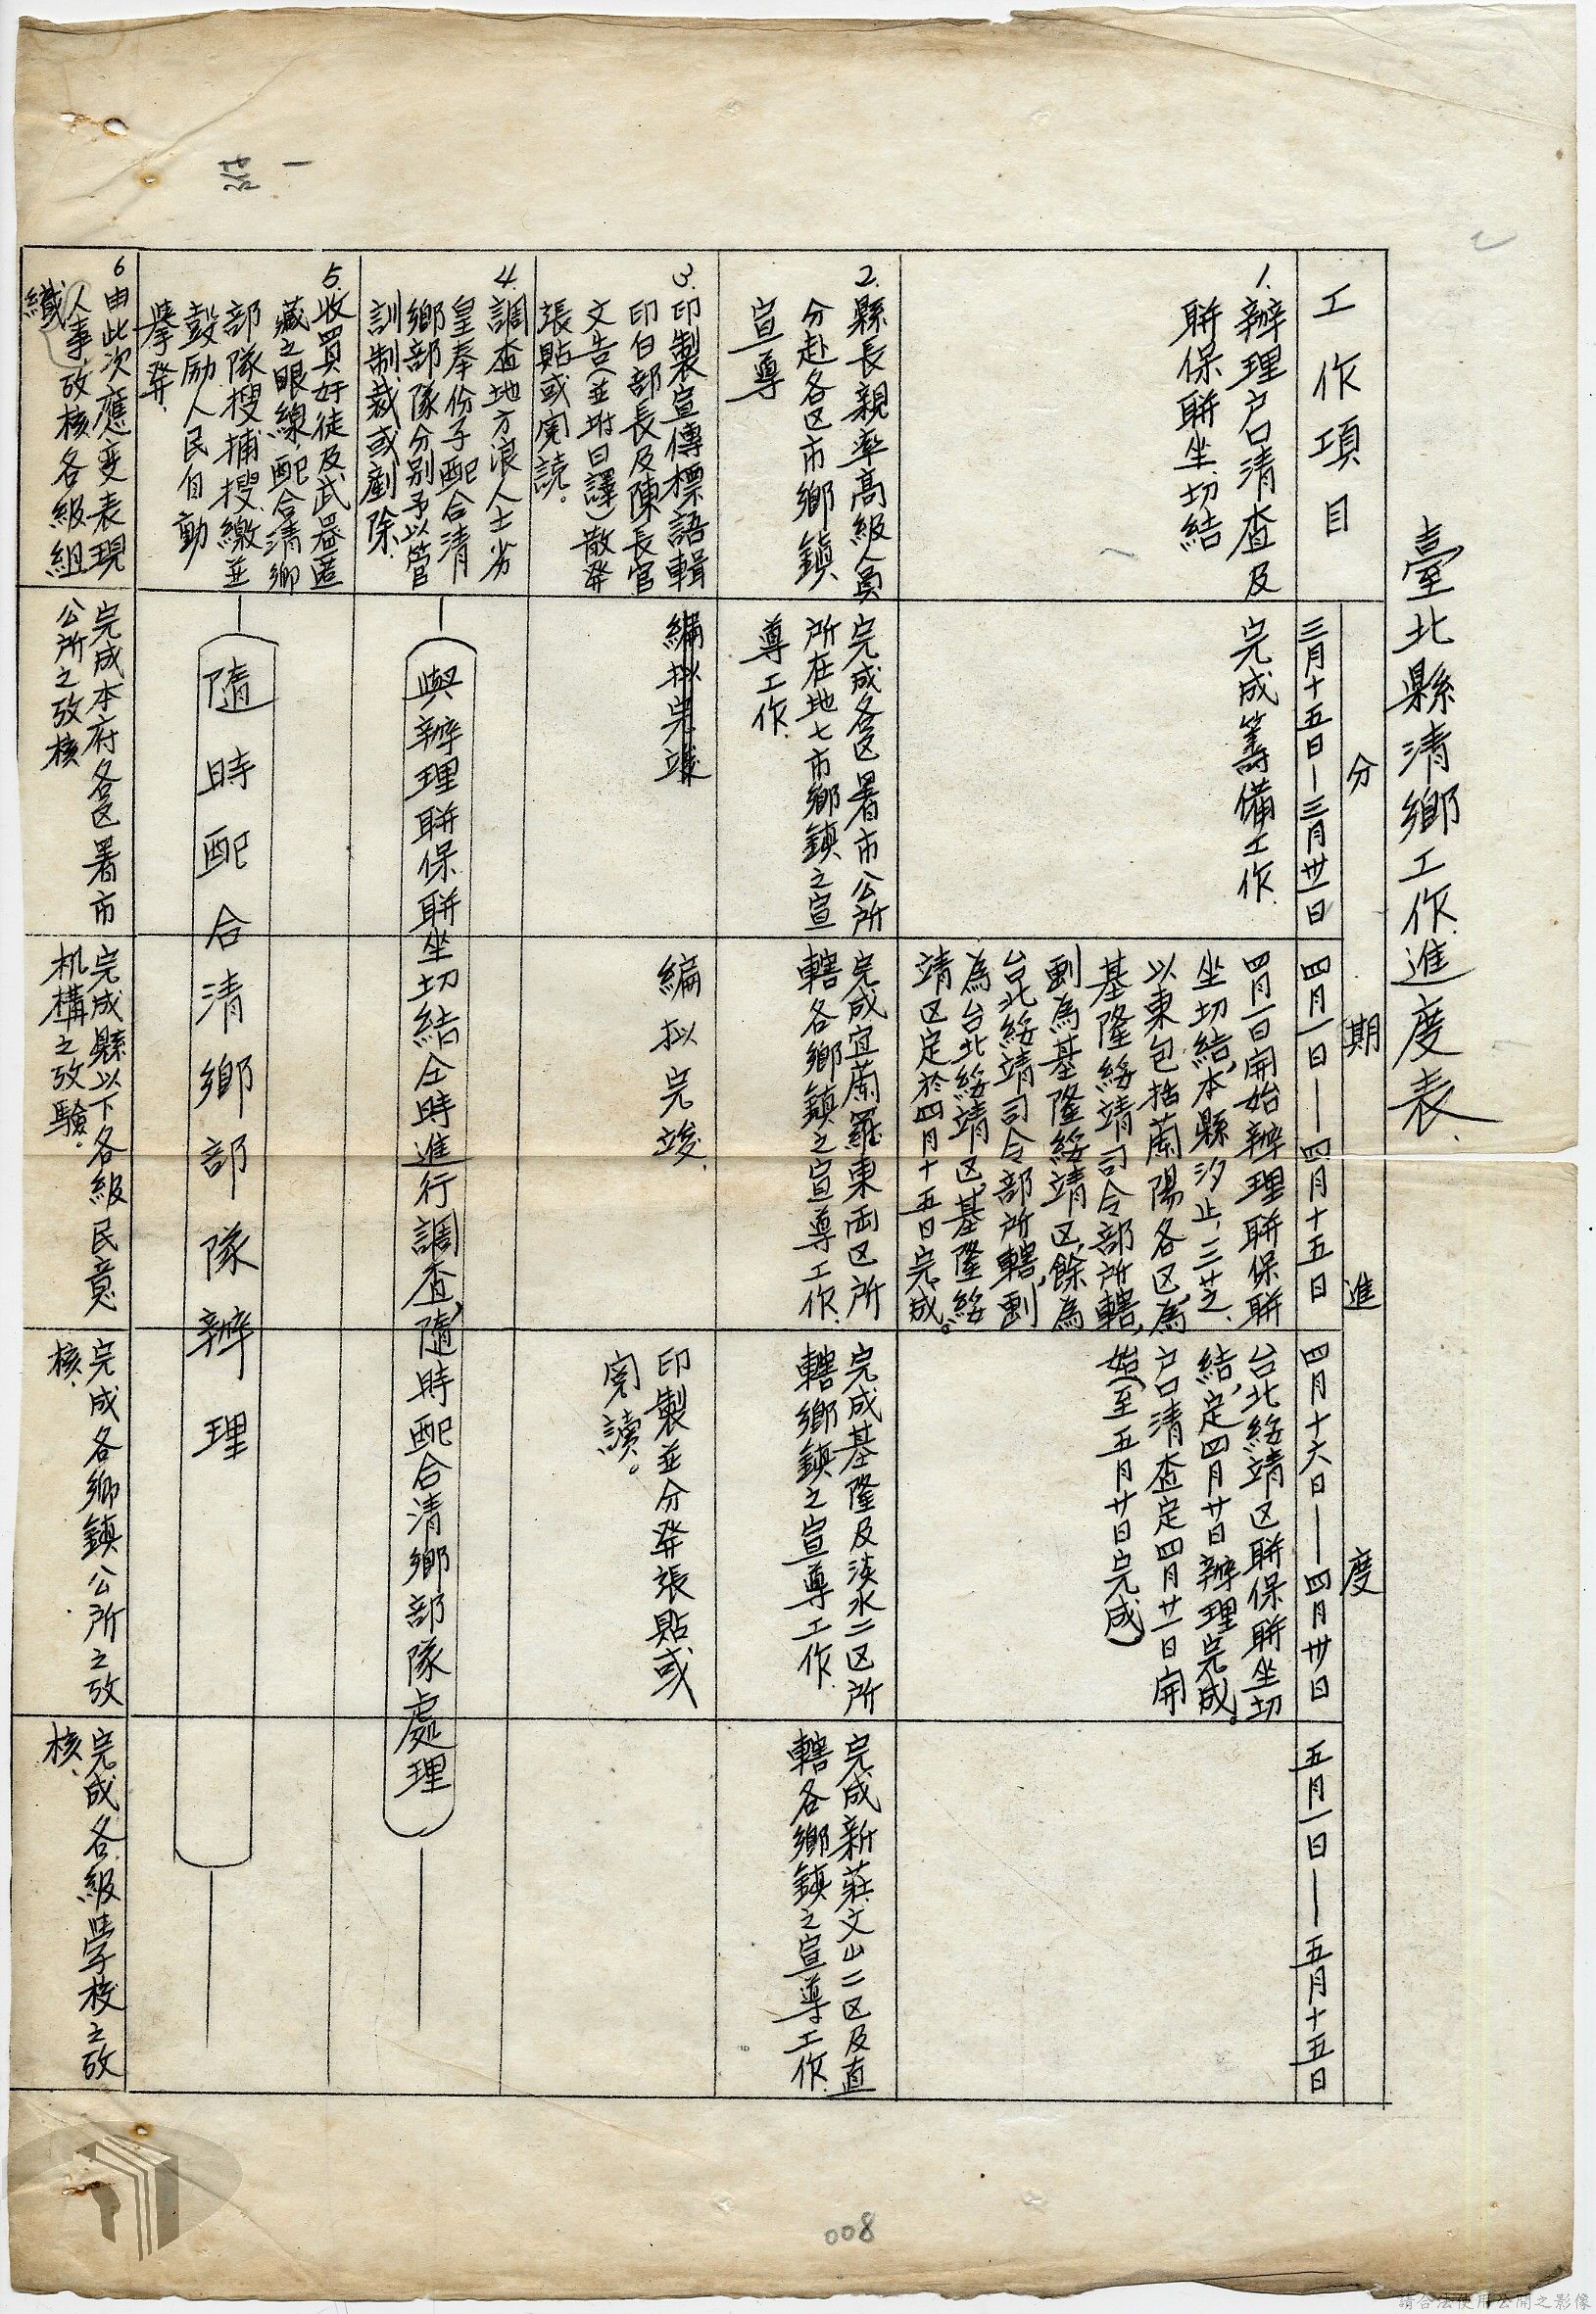 臺北縣清鄉工作進度表
工作項目
分期進度
三月十五日—三月卅一日
四月一日——四月十五日
四月十六日——四月卅日
五月一日——五月十五日
1.辦理户口清查及
聨保聨坐切結
完成籌備工作.
四月一日開始辦理聨保聨
坐切結,本縣汐止,三芝、
以東包括蘭陽各区為
基隆綏靖司令部所轄,
劃為基隆綏靖区,餘為
台北綏靖司令部所轄,劃
為台北綏靖区,基隆綏
靖区定於四月十五日完成。
台北綏靖区聨保聨坐切
結,定四月廿日辦理完成。
户口清查定四月廿一日開
始(至五月廿日完成)
2.縣長親率高級人員
分赴各区市鄉鎮
宣導
完成各区署市公所
所在地七市鄉鎮之宣
導工作.
完成宜蘭羅東両区所
轄各鄉鎮之宣導工作.
完成基隆及淡水二区所
轄鄉鎮之宣導工作.
完成新莊文山二区及直
轄各鄉鎮之宣導工作.
3.印製宣傳標語輯
印白部長及陳長官
文告(並坿日譯)散発
張貼或宣読。
編拟完竣
編拟完竣.
印製並分発張貼或
宣讀。
4.調查地方浪人士劣
皇奉份子配合清
鄉部隊分別予以管
訓制裁或剷除.
與辦理聨保聨坐切結仝時進行調查,隨時配合清鄉部隊處理
5.收買奸徒及武器匿
藏之眼線,配合清鄉
部隊搜捕搜繳並
鼓励人民自動
挙発.
隨時配合清鄉部隊辦理
6由此次應变表現
人事攷核各級組
織
完成本府各区署市
公所之攷核
完成縣以下各級民意
机構之攷驗。
完成各鄉鎮公所之攷
核.
完成各級学校之攷
核.
008
請合法使用公開之影像